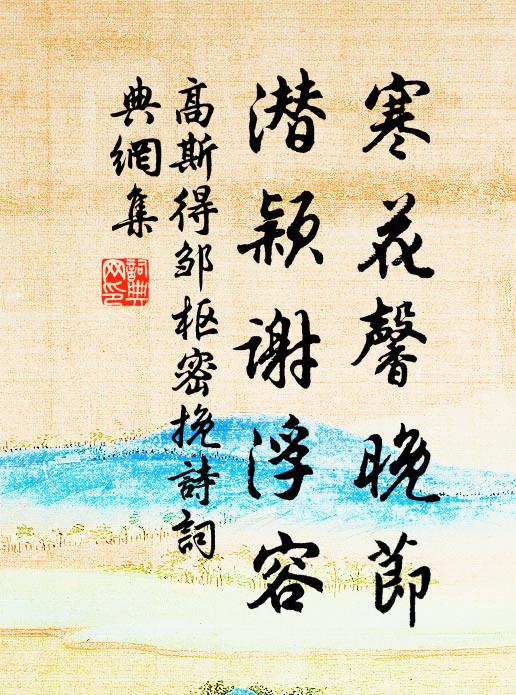 寒花馨晚節
潜颖謝浮容
高斯得邹枢密挽詩詞
典網集
詞典
网印